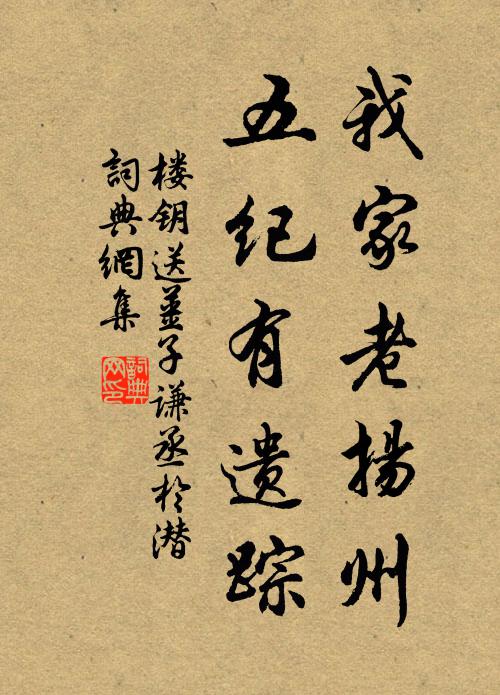 我家老揚州
五纪有遗踪
楼钥送姜子谦丞於潜
詞典網集
詞典网印